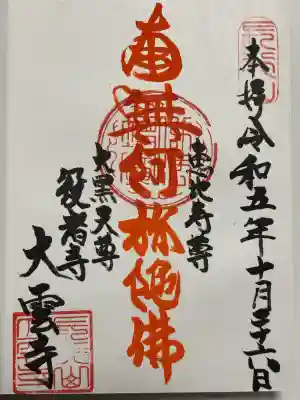 奉拝 令和五年十月二十六日
恵比寿尊
南無阿弥陀佛
大黒天尊
役者寺
大雲寺